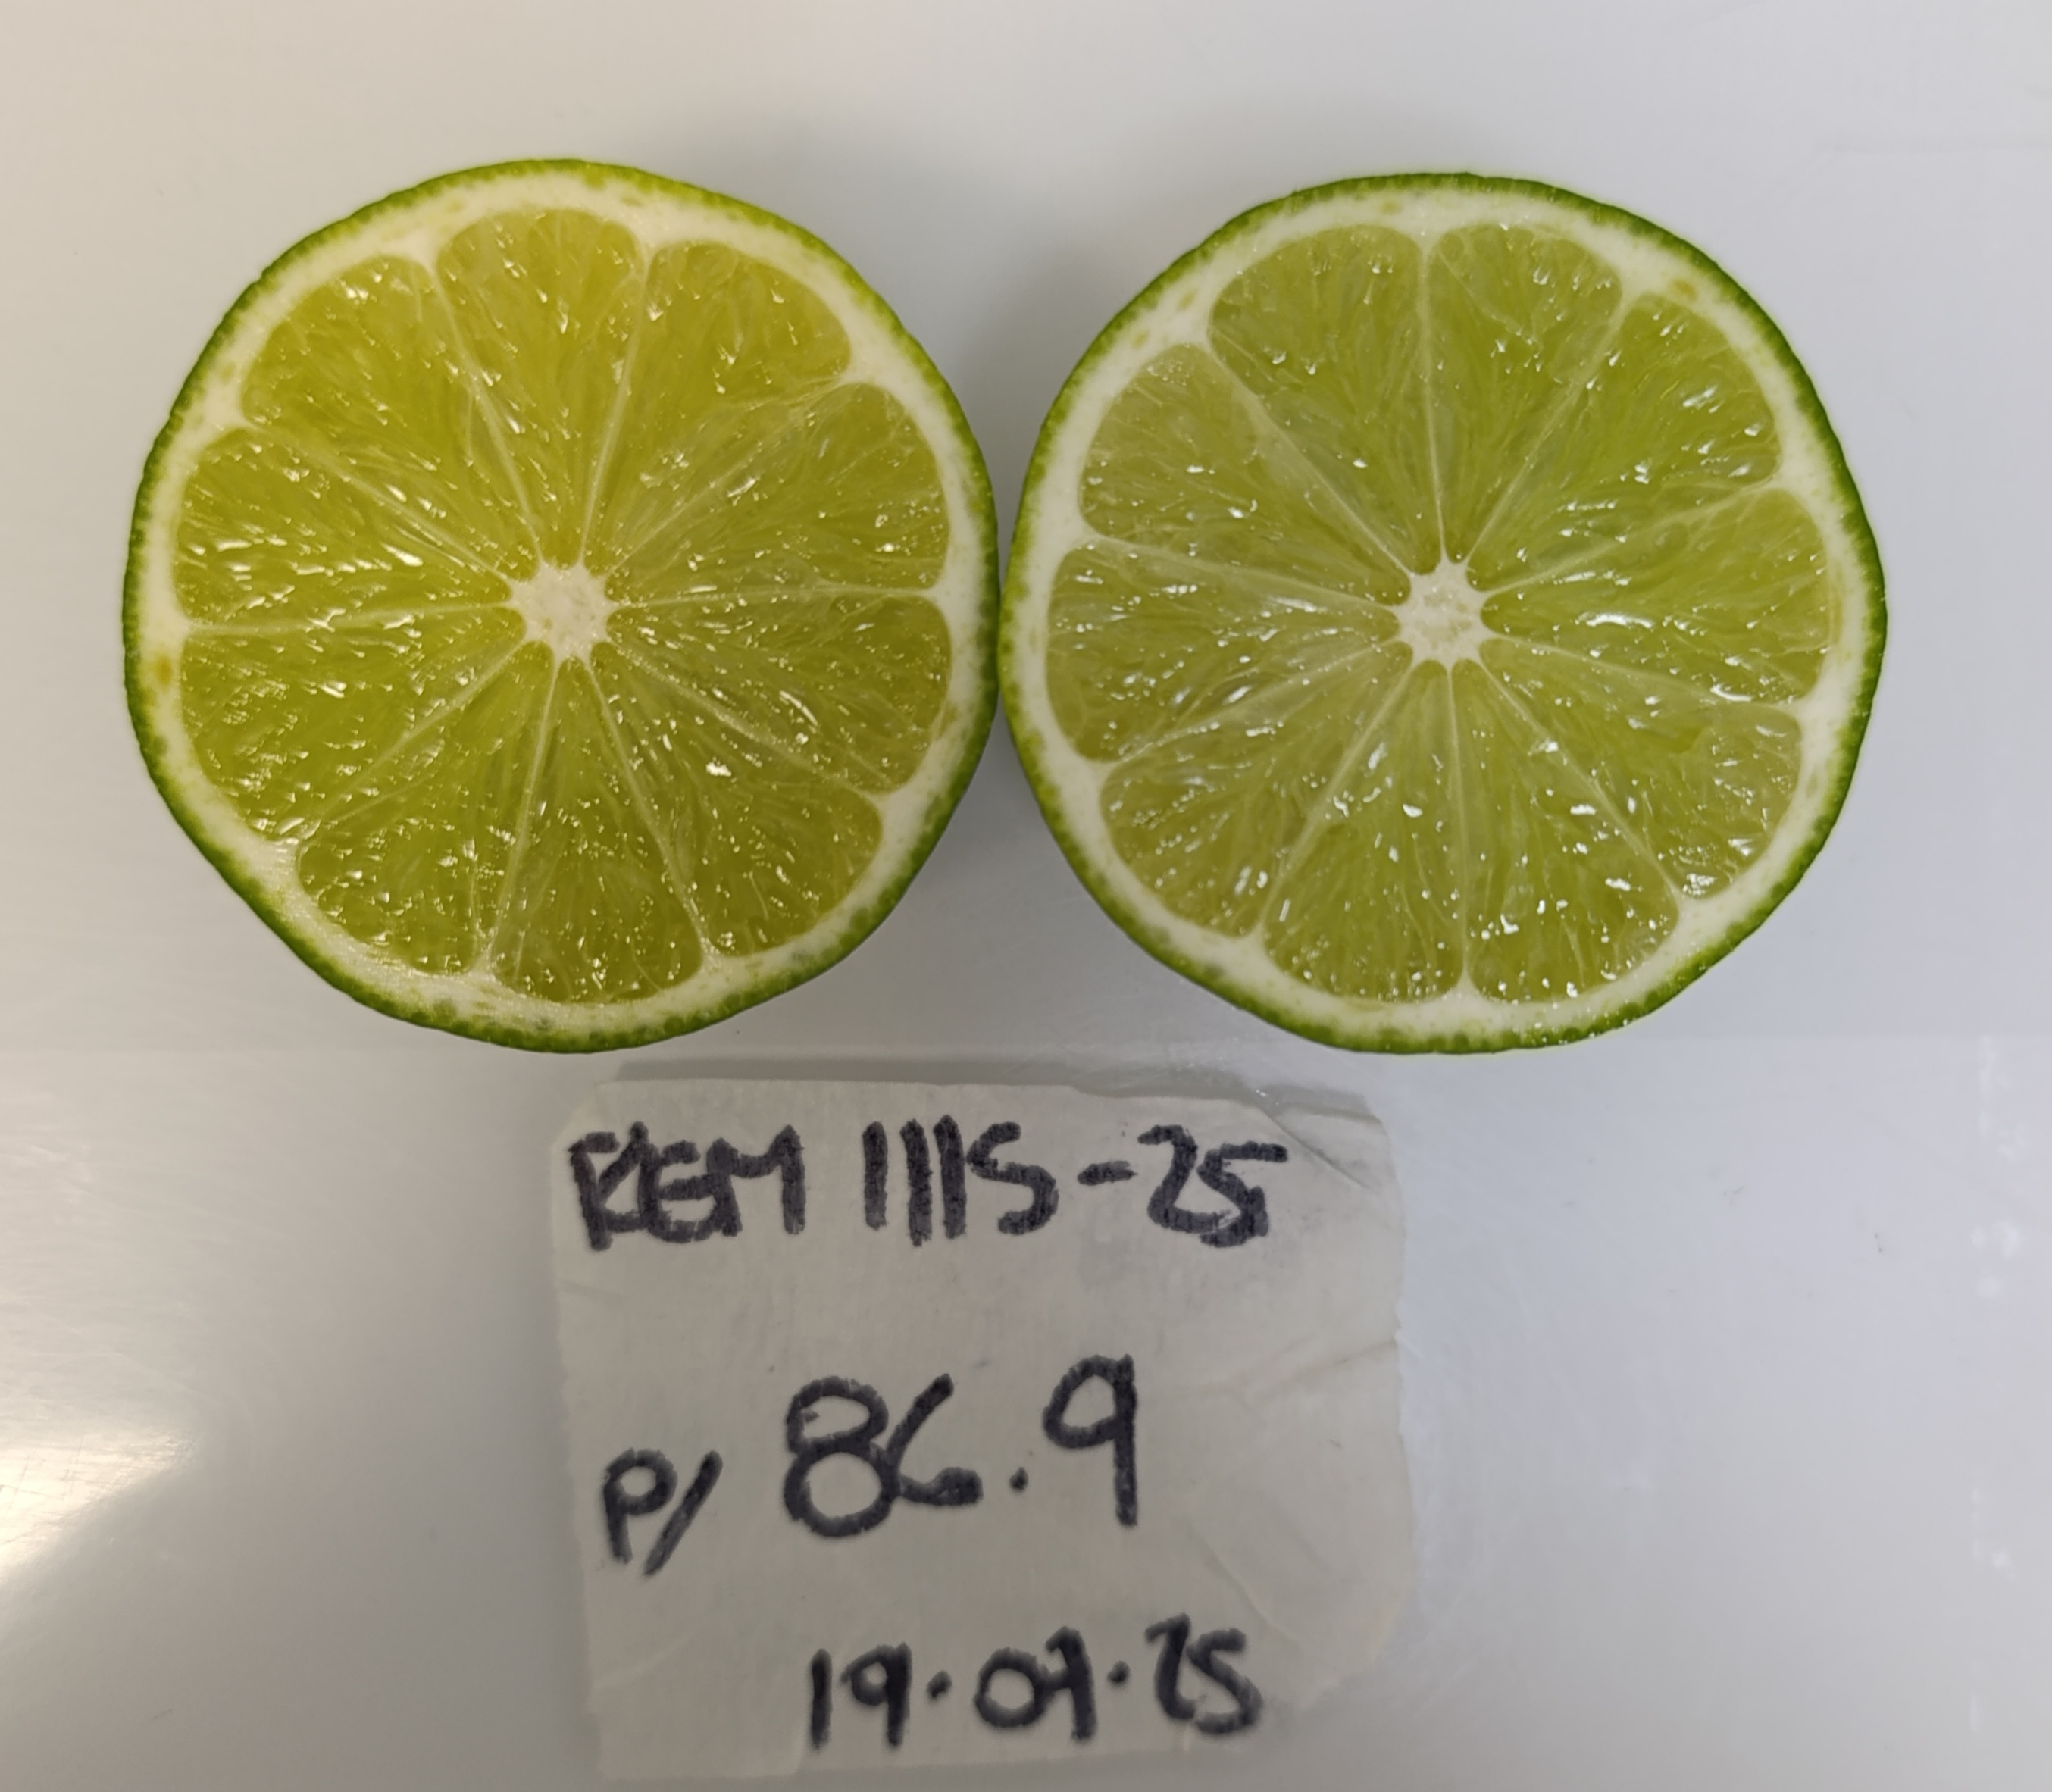 REM 1115-25
P/ 86.9
19.07.25